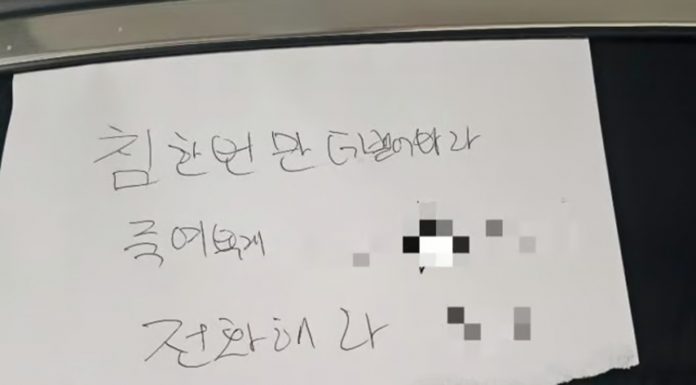 침 한번 만 더 뱉어바라
죽여 줄게
전화해라